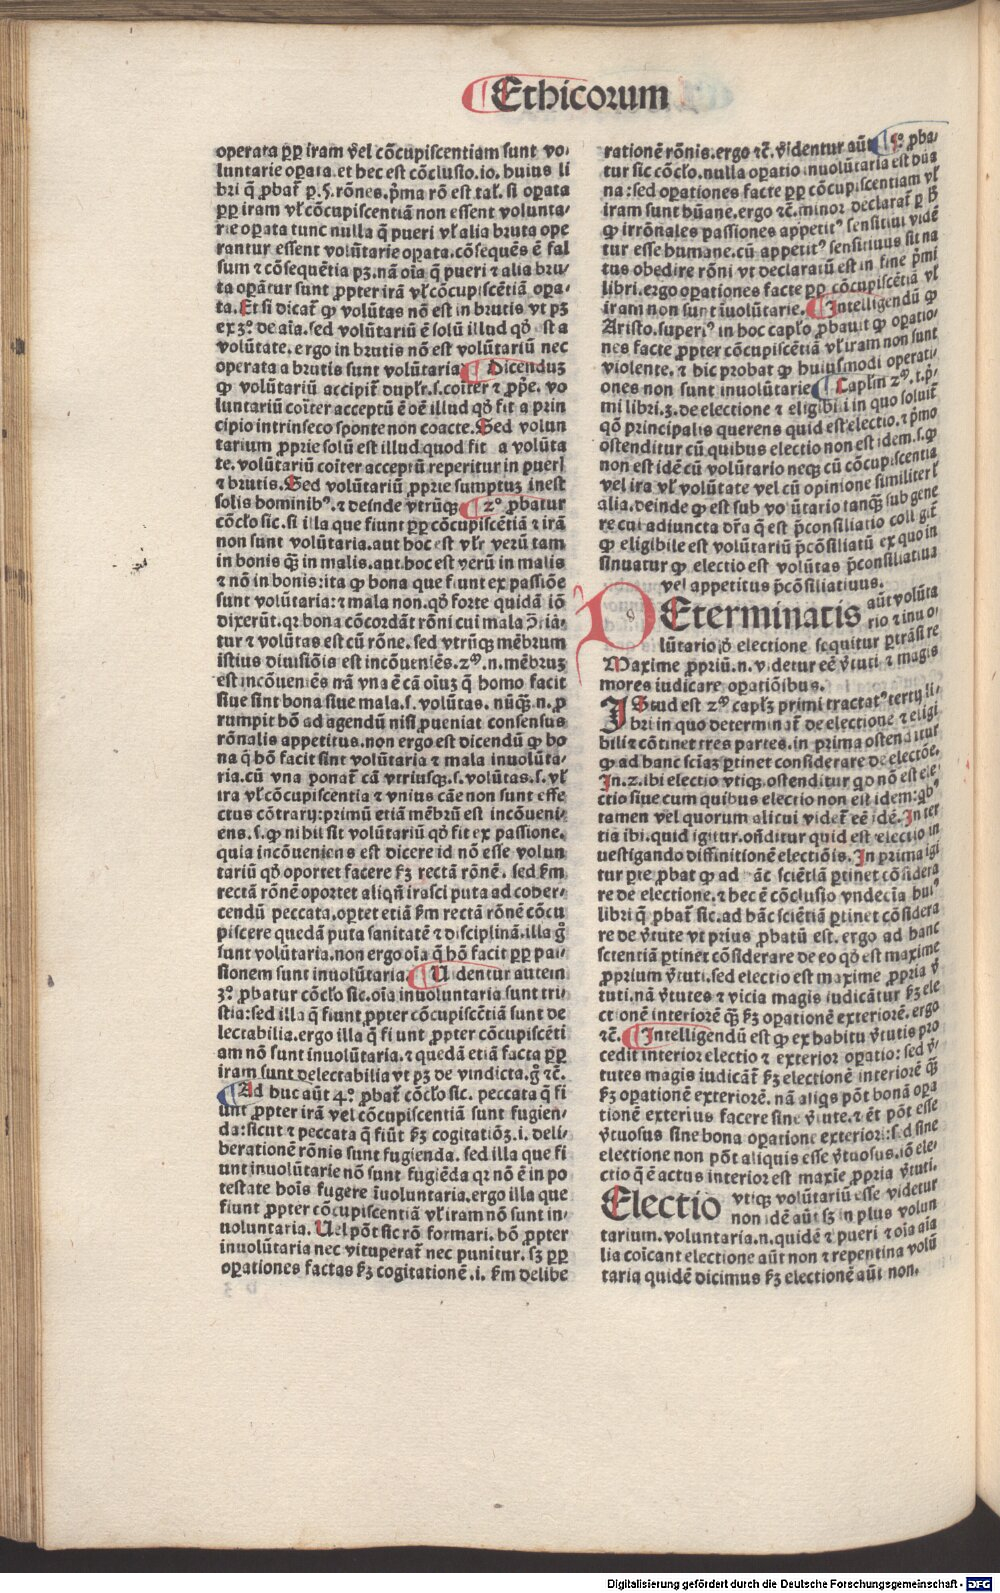 Ethicorum
operata ꝓp iram vel cōcupiscentiam sunt vo-
luntarie oꝑata. et hec est cōclusio .io. huius li
bri q̄ ꝓbat̄ ꝑ .5. rōnes. p̄ma rō est tal̄. si oꝑata
ꝓp iram vl̄ cōcupiscentiā non essent volunta-
rie oꝑata tunc nulla q̄ pueri vl̄ alia bruta ope
rantur essent volūtarie oꝑata. cōsequēs ē fal
sum ⁊ cōsequētia pꝫ. nā oīa q̄ pueri ⁊ alia bru-
ta oꝑātur sunt ꝓpter irā vl̄ cōcupiscētiā oꝑa-
ta. Et si dicat̄ ꝙ volūtas nō est in brutis vt pꝫ
ex 3º. de aīa. sed volūtariū ē solū illud qḋ st a
volūtate. ergo in brutis nō est volūtariū nec
operata a brutis sunt volūtaria. Dicenduꝫ
ꝙ volūtariū accipit̄ dupl̄r. s. coīter ⁊ ꝓp̄e. vo
luntariū coīter acceptū ē oē illud qḋ fit a prin
cipio intrinseco sponte non coacte. Sed volun
tarium ꝓprie solū est illud quod fit a volūta
te. volūtariū coīter acceptū reperitur in puerꝭ
⁊ brutis. Sed voluntariū ꝓprie sumptuꝫ inest
solis hominibꝰ. ⁊ deinde vtrūqꝫ 2º ꝓbatur
cōcl̄o sic. si illa que fiunt ꝓp cōcupiscētiā ⁊ irā
non sunt volūtaria. aut hoc est vl̄r verū tam
in bonis qꝫ̄ in malis. aut hoc est verū in malis
⁊ nō in bonis: ita ꝙ bona que fiunt ex passiōe
sunt volūtaria: ⁊ mala non. qḋ forte quidā iō
dixerūt. qꝛ bona cōcordāt rōni cui mala ꝯ̄riā-
tur ⁊ volūtas est cū rōne. sed vtrūqꝫ mēbrum
istius diuisiōis est incōueniēs. 2ᵐ. n. mēbruꝫ
est incōueniēs nā vna ē cā oīuꝫ q̄ homo facit
siue sint bona siue mala. s. voluntas. nūqꝫ̄. n. ꝓ
rumpit hō ad agendū nisi ꝓueniat consensus
rōnalis appetitus. non ergo est dicendū ꝙ bo
na q̄ hō facit sint volūtaria ⁊ mala inuolūta-
ria. cū vna ponat̄ cā vtriusqꝫ. s. volūtas. s. vl̄
ira vl̄ cōcupiscentia ⁊ vnius cāe non sunt effe
ctus cōtrarij: primū etiā mēbrū est incōueni-
ens. s. ꝙ nihil sit volūtariū qḋ fit ex passione.
quia incōueniens est dicere id nō esse volun
tariū qḋ oportet facere ẜꝫ rectā rōnē. sed ẜm
rectā rōnē oportet aliqn̄ irasci puta ad coher-
cendū peccata. oꝑtet etiā ẜm rectā rōnē cōcu
piscere quedā puta sanitatē ⁊ disciplinā. illa ḡ
sunt voluntaria. non ergo oīa q̄ hō facit ꝓp pas-
sionem sunt inuolūtaria. Uidentur autem
3º. ꝓbatur cōcl̄o sic. oīa inuoluntaria sunt tri-
stia: sed illa q̄ fiunt ꝓpter cōcupiscētiā sunt de
lectabilia. ergo illa q̄ fiunt ꝓpter cōcupiscēti
am nō sunt inuolūtaria. ⁊ quedā etiā facta ꝓp
iram sunt delectabilia vt pꝫ de vindicta. ḡ ⁊c̄.
Ad huc aūt 4º. ꝓbat̄ cōcl̄o sic. peccata q̄ fi
unt ꝓpter irā vel cōcupiscentiā sunt fugien-
da: sicut ⁊ peccata q̄ fiūt ẜꝫ cogitatiōꝫ. i. deli-
berationē rōnis sunt fugienda. sed illa que fi
unt inuolūtarie nō sunt fugiēda qꝛ nō ē in po
testate hoīs fugere īuoluntaria. ergo illa que
fiunt ꝓpter cōcupiscentiā vl̄ iram nō sunt in-
uoluntaria. Uel pōt sic rō formari. hō ꝓpter
inuolūtaria nec vituperat̄ nec punitur. sꝫ ꝓp
oꝑationes factas ẜꝫ cogitationē. i. ẜm delibe
rationē rōnis. ergo ⁊c̄. v̄identur aūt 5º. ꝓba-
tur sic cōcl̄o. nulla oꝑatio inuolūtaria est hūa
na: sed oꝑationes facte ꝓp cōcupiscentiam vl̄
iram sunt hūane. ergo ⁊c̄. minor declarat̄ ꝑ ḣ
ꝙ irrōnales passiones appetitꝰ sensitiui vidē
tur esse humane. cū appetitꝰ sensitiuus sit na
tus obedire rōni vt declaratū est in fine p̄mi
libri. ergo oꝑationes facte ꝓp cōcupiscētiā vl̄
iram non sunt īuolūtarie. Intelligendū ꝙ
Aristo. superiꝰ in hoc capl̄o ꝓbauit ꝙ oꝑatio-
nes facte ꝓpter cōcupiscētiā vl̄ iram non sunt
violente. ⁊ hic probat ꝙ huiusmodi operati-
ones non sunt inuolūtarie. Capl̄m 2ᵐ. t. p̄-
mi libri. 3. de electione ⁊ eligibili in quo soluit̄
qō principalis querens quid est electio. ⁊ p̄mo
ostenditur cū quibus electio non est idem. s. ꝙ
non est idē cū volūtario neqꝫ cū cōcupiscentia
vel ira vl̄ volūtate vel cū opinione similiter l̄
alia. deinde ꝙ est sub voluntario tanqꝫ̄ sub gene
re cui adiuncta dr̄a q̄ est p̄consiliatio collgit̄
ꝙ eligibile est volūtariū p̄cōsiliatū ex quo in
sinuatur ꝙ electio est volūtas p̄consiliatiua
vel appetitus p̄cōsiliatiuus.
DEterminatis aūt volūta
rio ⁊ inuo-
lūtario ḋ electione sequitur ꝑtrāsire
Maxime ꝓpriū. n. videtur eē v̄tuti ⁊ magis
mores iudicare oꝑatiōibus.
IStud est 2ᵐ capl̄ꝫ primi tractatꝰ tertij li-
bri in quo determinat̄ de electione ⁊ eligi
bili ⁊ cōtinet tres partes. in prima ostenditur
ꝙ ad hanc sciaꝫ ꝑtinet considerare de electōe.
In .2. ibi electio vtiqꝫ. ostenditur qo nō est ele
ctio siue cum quibus electio non est idem: qbꝰ
tamen vel quorum alicui videt̄ eē idē. In ter
tia ibi. quid igitur. on̄ditur quid est electio in
uestigando diffinitionē electiōis. In prima igi
tur pte ꝓbat ꝙ ad hāc sciētiā ꝑtinet cōsidera
re de electione. ⁊ hec ē cōclusio vndecīa huiꝰ
libri q̄ ꝓbat̄ sic. ad hāc sciētiā ꝑtinet cōsidera
re de v̄tute vt prius ꝓbatū est. ergo ad hanc
scientiā ꝑtinet cōsiderare de eo qḋ est maxime
ꝓprium v̄tuti. sed electio est maxime ꝓpria v̄
tuti. nā v̄tutes ⁊ vicia magis iudicātur ẜꝫ ele
ctionē interiorē qꝫ̄ ẜꝫ oꝑationē exteriorē. ergo
⁊c̄. Intelligendū est ꝙ ex habitu v̄tutis pro
cedit interior electio ⁊ exterior oꝑatio: sed v̄-
tutes magis iudicāt̄ ẜꝫ electionē interiorē qꝫ̄
ẜꝫ oꝑationē exteriorē. nā aliqs pōt bonā oꝑa
tionē exterius facere sine v̄tute. ⁊ ēt pōt esse
v̄tuosus sine bona oꝑatione exteriori: sed sine
electione non pōt aliquis esse v̄tuosus. iō ele-
ctio q̄ ē actus interior est maxīe ꝓpria v̄tuti.
Electio vtiqꝫ volūtariū esse videtur
non idē aūt sꝫ in plus volun
tarium. voluntaria. n. quidē ⁊ pueri ⁊ oīa aīa
lia coīcant electione aūt non ⁊ repentina volū
taria quidē dicimus ẜꝫ electionē aūt non.
Digitalisierung gefördert durch die Deutsche Forschungsgemeinschaft - DFG